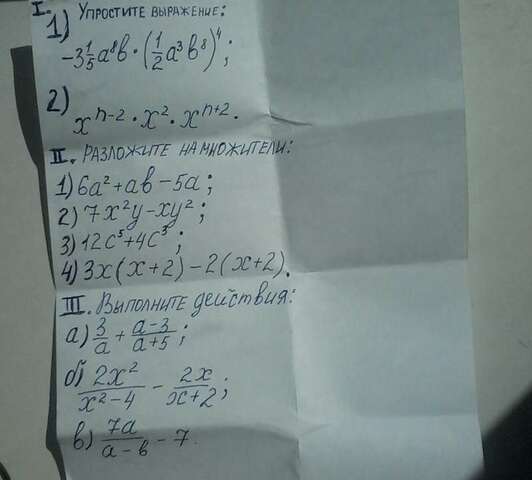 I. Упростите выражение:
1) -3 1/5 a⁸b · (1/2 a³b⁸)⁴;
2) xⁿ⁻² · x² · xⁿ⁺².
II. Разложите на множители:
1) 6a² + ab - 5a;
2) 7x²y - xy²;
3) 12c⁵ + 4c³;
4) 3x(x+2) - 2(x+2).
III. Выполните действия:
а) 3/a + (a-3)/(a+5);
б) 2x²/(x²-4) - 2x/(x+2);
в) 7a/(a-b) - 7.